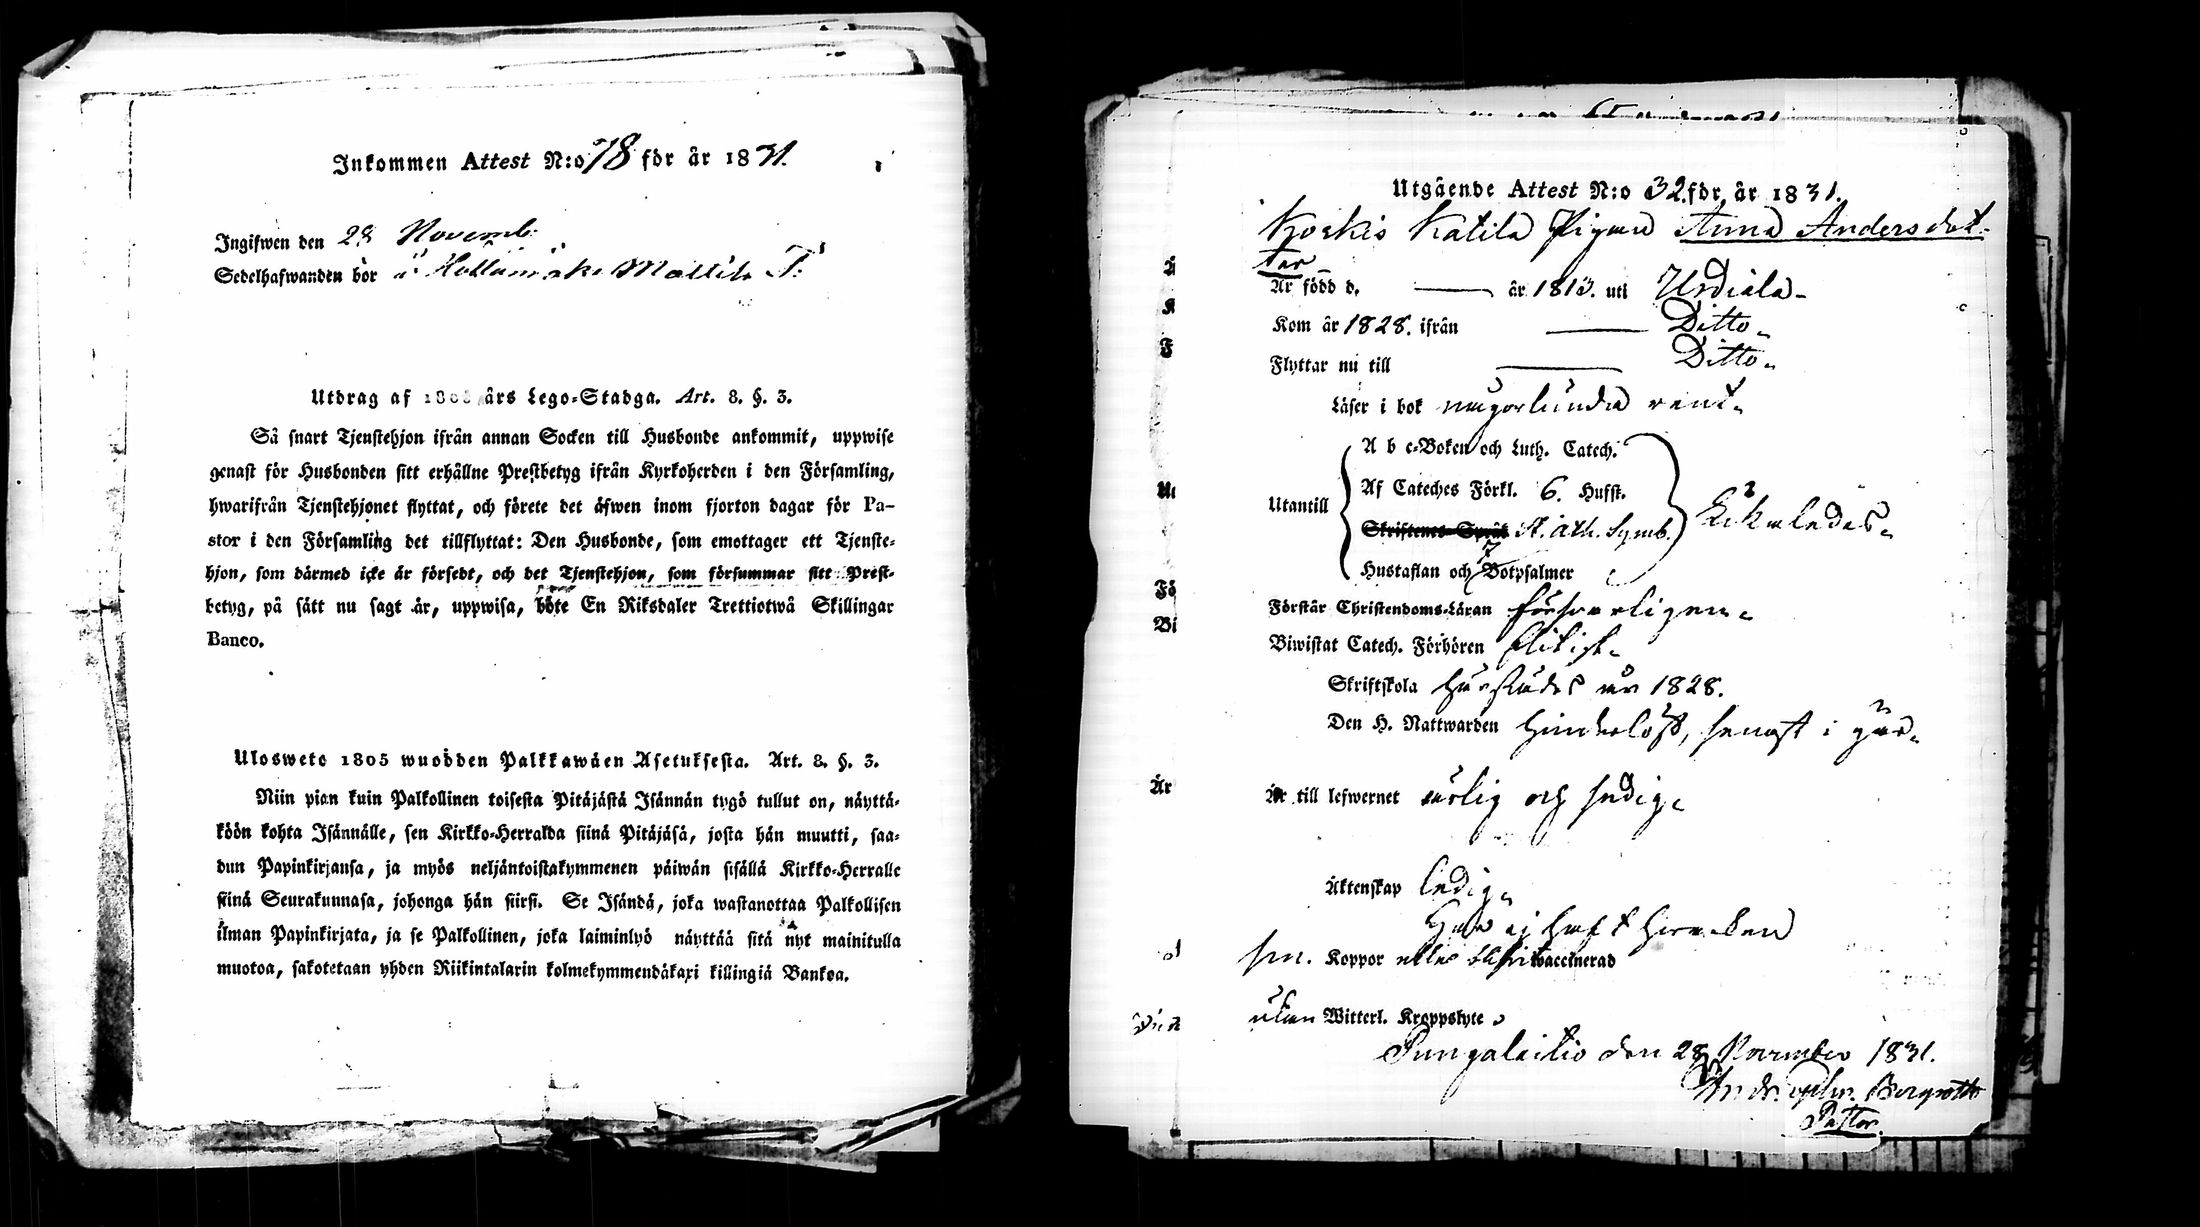 Inkommen Attest N:o 78 för år 1831.
Ingifwen den 28 Novemb:
Sedelhafwanden bör i Hollumäki Mattila T:
Utdrag af 1805 års Lego-Stadga. Art. 8. §. 3.
Så snart Tjenstehjon ifrån annan Socken till Husbonde ankommit, uppwise
genast för Husbonden sitt erhållne Prestbetyg ifrån Kyrkoherden i den Församling,
hwarifrån Tjenstehjonet flyttat, och förete det äfwen inom fjorton dagar för Pa-
stor i den Församling det tillflyttat: Den Husbonde, som emottager ett Tjenste-
hjon, som därmed icke är försedt, och det Tjenstehjon, som försummar sitt Prest-
betyg, på sätt nu sagt är, uppwisa, böte En Riksdaler Trettiotwå Skillingar
Banco.
Ulosweto 1805 wuodden Palkkawäen Asetuksesta. Art. 8. §. 3.
Niin pian kuin Palkollinen toisesta Pitäjästä Isännän tygö tullut on, näyttä-
köön kohta Isännälle, sen Kirkko-Herralda siinä Pitäjäsä, josta hän muutti, saa-
dun Papinkirjansa, ja myös neljäntoistakymmenen päiwän sisällä Kirkko-Herralle
siinä Seurakunnasa, johonga hän siirsi. Se Isändä, joka wastanottaa Palkollisen
ilman Papinkirjata, ja se Palkollinen, joka laiminlyö näyttää sitä nyt mainitulla
muotoa, sakotetaan yhden Riikintalarin kolmekymmendäkaxi killingiä Bankoa.
Utgående Attest N:o 32. för år 1831.
Koskis Katila Pigan Anna Andersdot-
ter
Är född d. — år 1813. uti Urdiala
Kom år 1828. ifrån — Ditto
Flyttar nu till — Ditto
Läser i bok någorlunda rent.
A b c-Boken och Luth. Catech.
Utantill Af Cateches Förkl. 6. Hufst. Likaledes.
Skriftenes Språk A. Ath. Symb.
Hustaflan och 7 Botpsalmer
Förstår Christendoms-Läran försvarligen.
Biwistat Catech. Förhören flitigt.
Skriftskola härstädes år 1828.
Den H. Nattwarden hinderlöst, senast i går.
Är till lefwernet ärlig och sedig.
Äktenskap ledig.
Har ej haft hwarken
sm. Koppor eller blifvit waccinerad
utan Witterl. Kroppslyte
Pungalaitio den 28 November 1831.
Bergroth
Pastor.